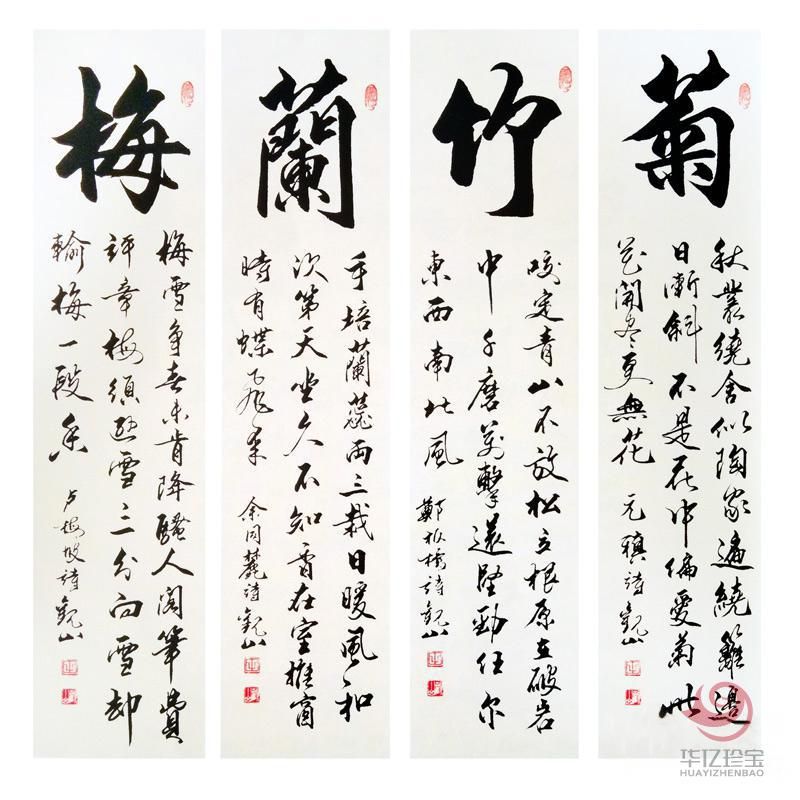 梅
梅雪争春未肯降騷人阁筆費
評章梅須遜雪三分白雪却
輸梅一段香
卢梅坡詩觀山
蘭
手培蘭蕊两三栽日暖風和
次第天坐久不知香在室推窗
時有蝶飛来
余同麓詩觀山
竹
咬定青山不放松立根原在破岩
中千磨萬擊還堅勁任尔
東西南北風
鄭板橋詩觀山
菊
秋叢繞舍似陶家遍繞籬邊
日漸斜不是花中偏愛菊此
花開尽更無花
元稹詩觀山
华亿珍宝
HUAYIZHENBAO